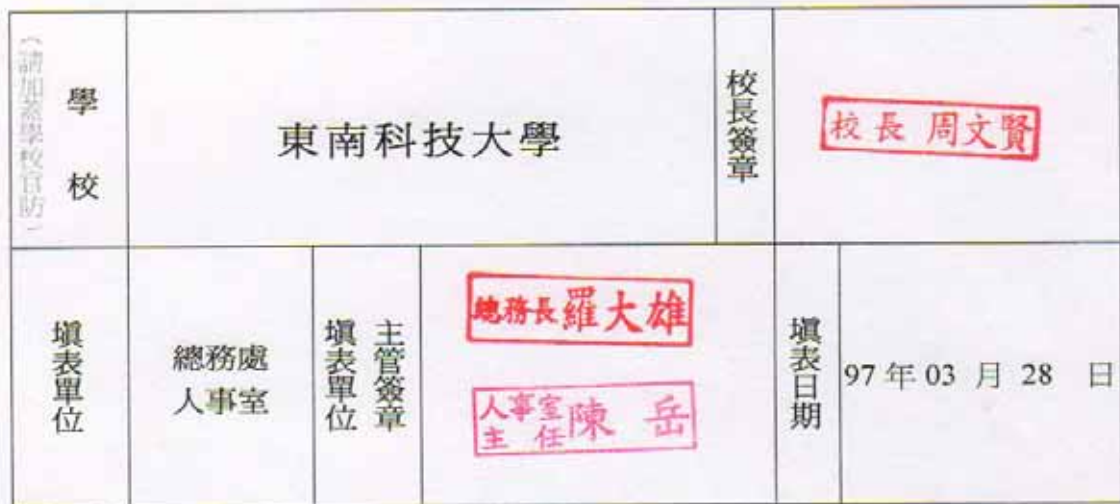 學校
（請加蓋學校官防）
東南科技大學
校長簽章
校長 周文賢
填表單位
總務處
人事室
填表單位
主管簽章
總務長羅大雄
人事室
主任陳岳
填表日期
97 年 03 月 28 日